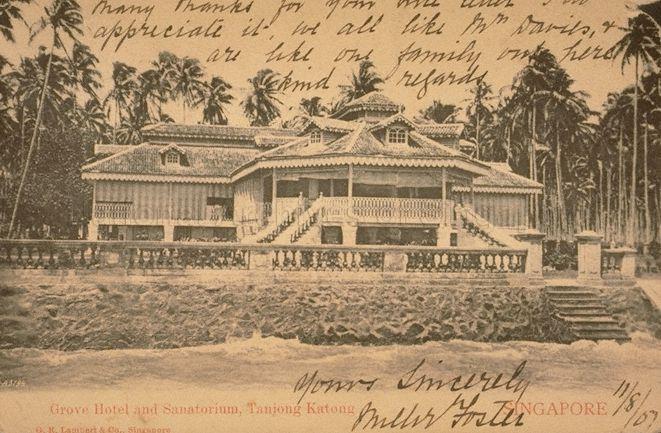 Many thanks for your
appreciate it, we all like Mr Davies, &
are like one family out here
kind regards
Yours Sincerely
Miller Foster
11/8/07
Grove Hotel and Sanatorium, Tanjong Katong
SINGAPORE
G. R. Lambert & Co., Singapore